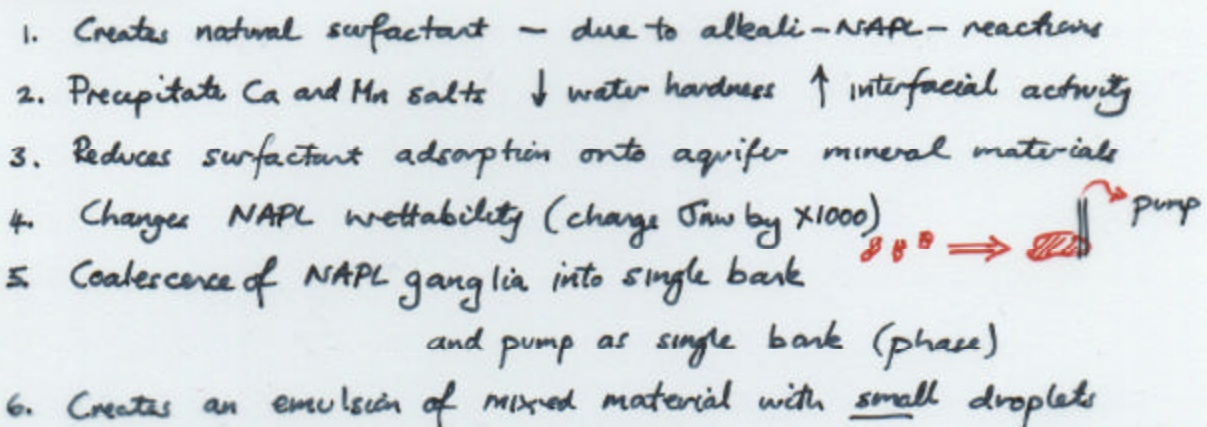 1. Creates natural surfactant – due to alkali-NAPL-reactions
2. Precipitate Ca and Mn salts ↓ water hardness ↑ interfacial activity
3. Reduces surfactant adsorption onto aquifer mineral materials
4. Changes NAPL wettability (change σnw by X1000)
pump
5. Coalescence of NAPL ganglia into single bank
and pump as single bank (phase)
6. Creates an emulsion of mixed material with small droplets